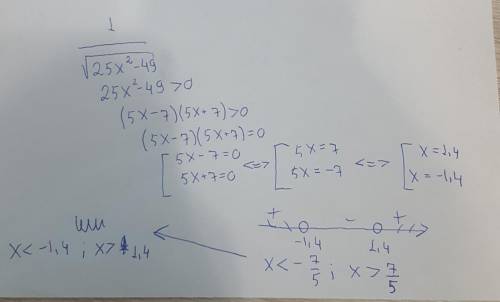 1
√25x²-49
25x²-49>0
(5x-7)(5x+7)>0
(5x-7)(5x+7)=0
[5x-7=0 <=> [5x=7 <=> [x=1,4
5x+7=0 5x=-7 x=-1,4
+ - +
-1,4 1,4
x<-7/5 ; x>7/5
или
x<-1,4 ; x>1,4